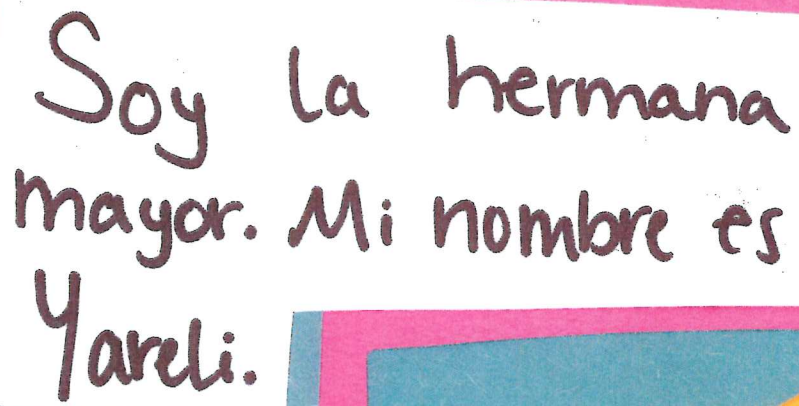 Soy la hermana
mayor. Mi nombre es
Yareli.